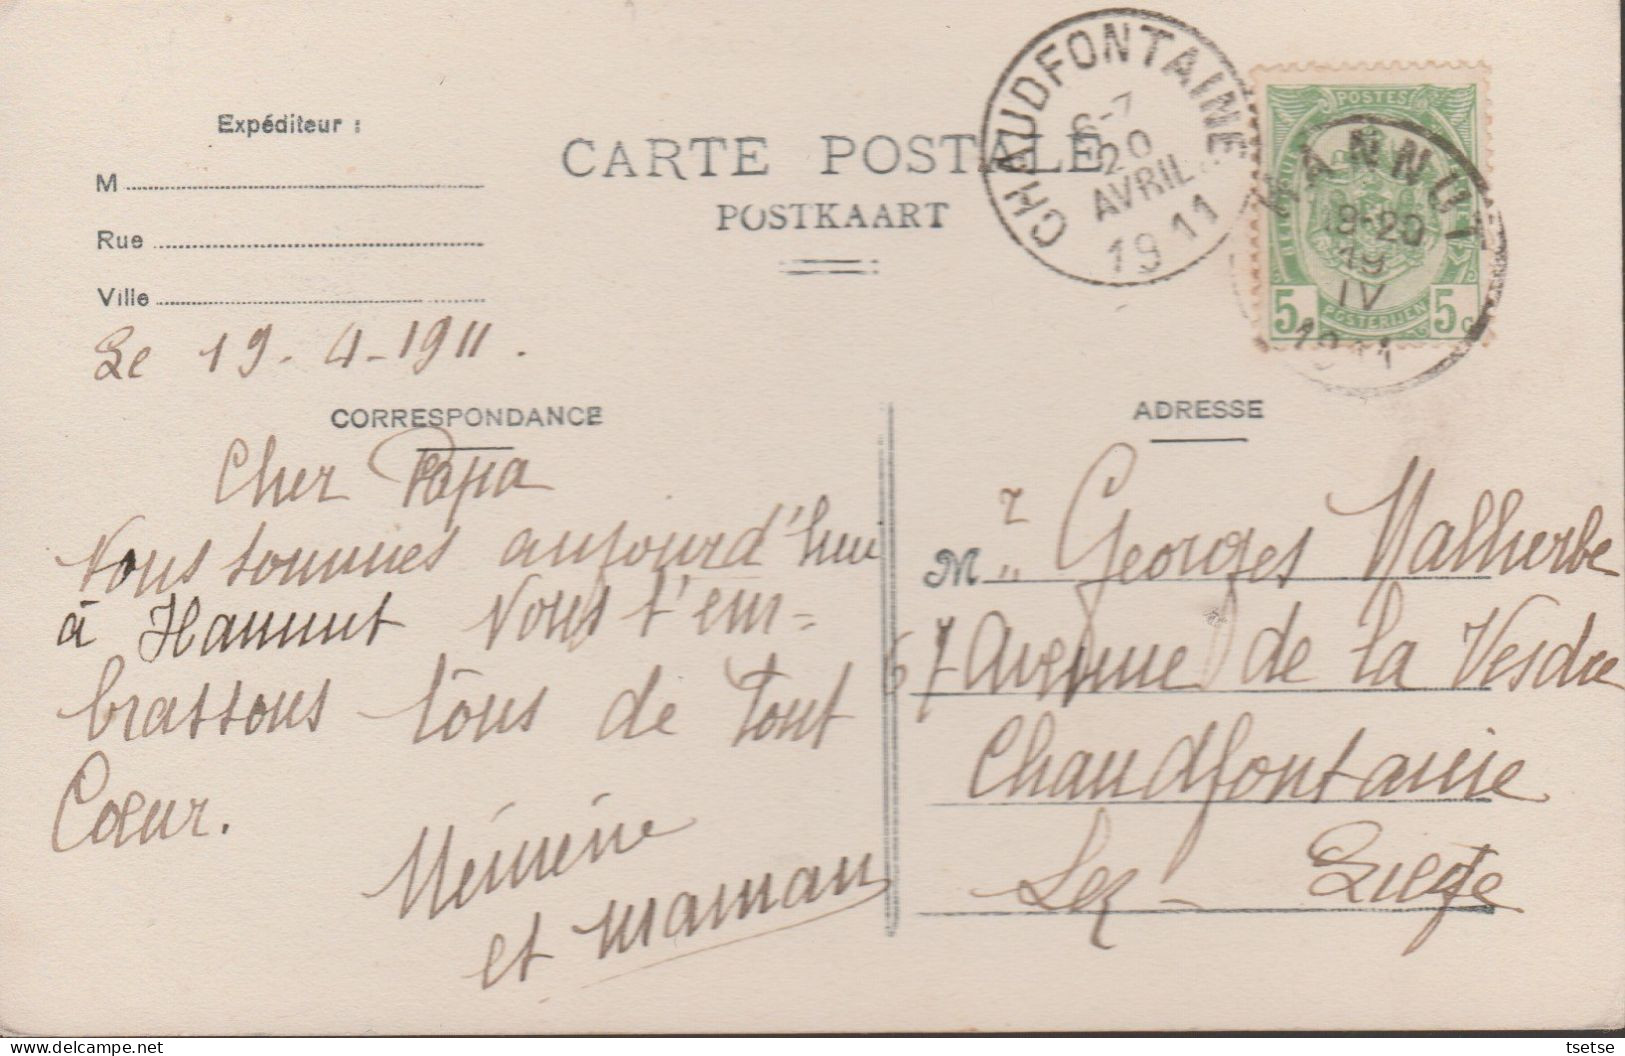 Expéditeur :
M
Rue
Ville
CARTE POSTALE
POSTKAART
CHAUDFONTAINE
6-7
20
AVRIL
1911
POSTES
HANNUT
18-20
19
IV
1911
5
POSTERIJEN
5 c
Le 19-4-1911.
CORRESPONDANCE
ADRESSE
Cher Papa
Nous sommes aujourd'hui
à Hannut Nous t'em=
brassons tous de tout
Coeur.
Mémène
et maman
Mr Georges Malherbe
67 Avenue de la Vesdre
Chaudfontaine
Lez - Liège
tsetse